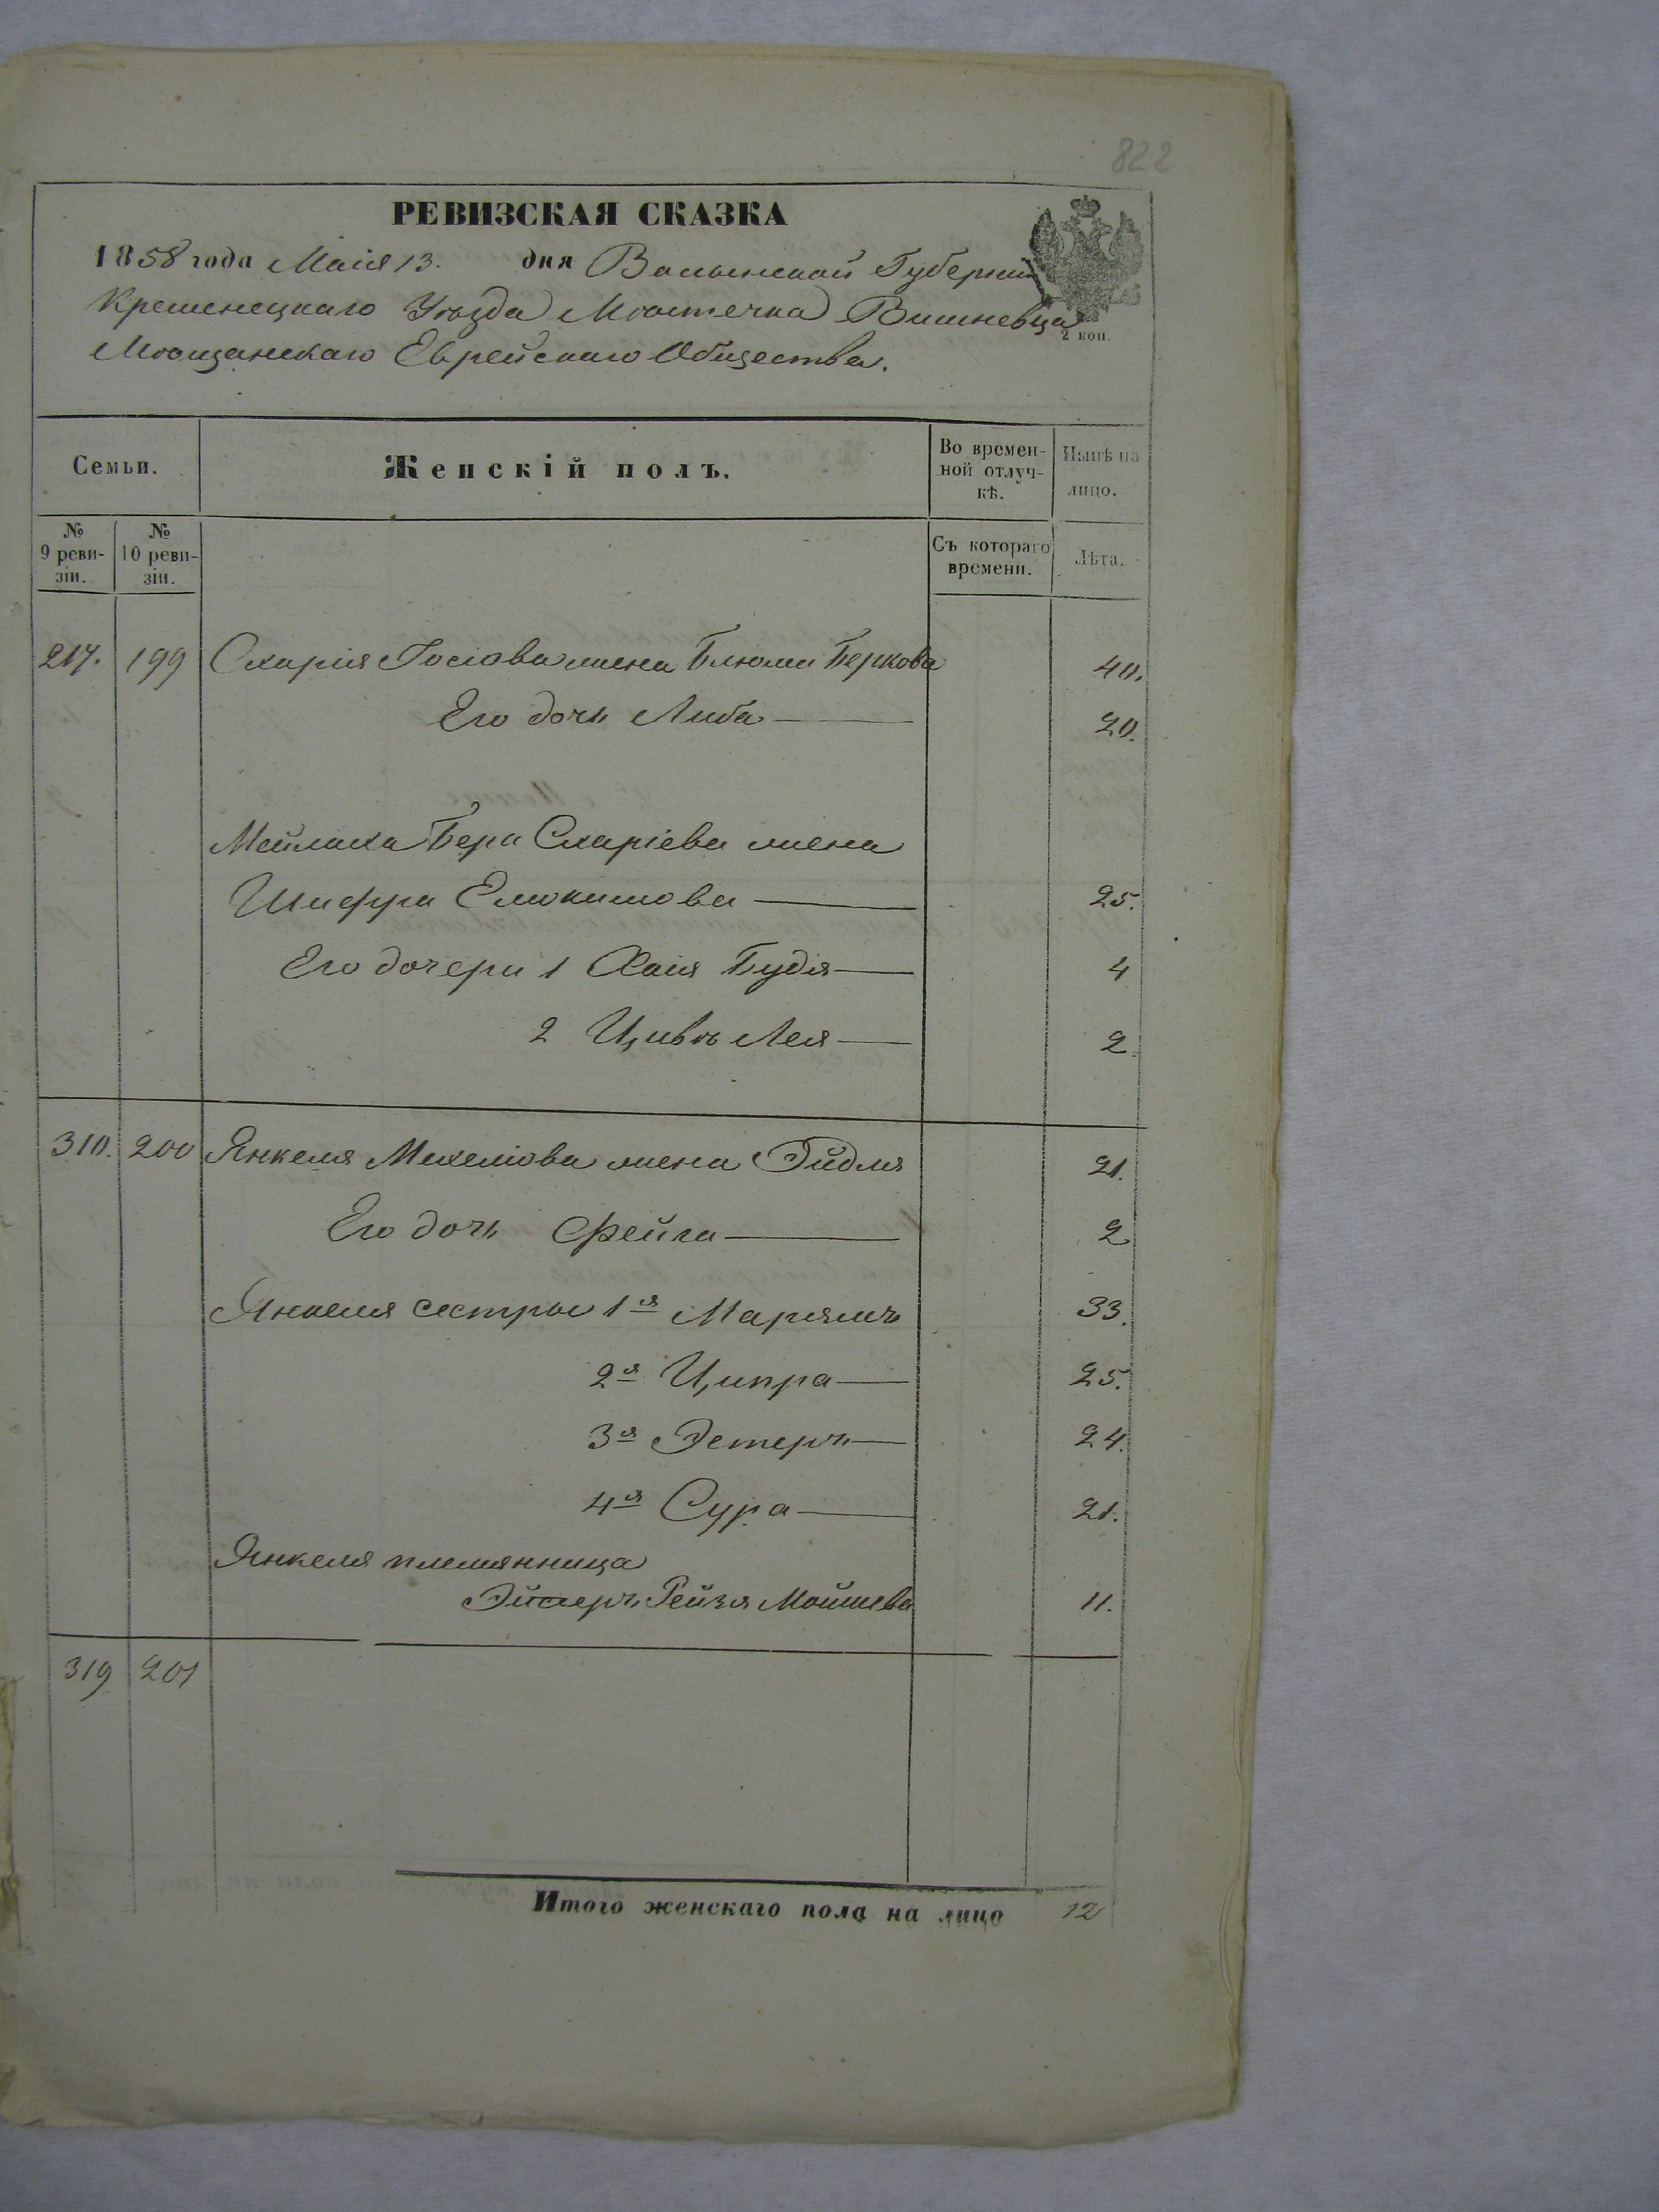 822
РЕВИЗСКАЯ СКАЗКА
1858 года Маія 13. дня Волынской Губерніи
Кременецкаго Уѣзда Мѣстечка Вишневца
2 коп.
Мѣщанскаго Еврейскаго Общества.
Семьи. Женскій полъ. Во времен-ной отлуч-кѣ. Нынѣ на лицо.
№ 9 реви-зіи. № 10 реви-зіи. Съ котораго времени. Лѣта.
217. 199 Схарія Іосіова жена Блюма Беркова 40.
Его дочь Либа 20.
Мейлаха Бера Схаріева жена
Шифра 25.
Его дочери 1 Хаія Будя 4
2 Цивъ Лея 2.
310. 200 Янкеля Мехеліова жена Эйдля 21.
Его дочь Фейга 2
Янкеля сестры 1я Марямъ 33.
2я Ципра 25.
3я Эстеръ 24.
4я Сура 21.
Янкеля племянница
Эйстеръ Рейзя Мошкова 11.
319 201
Итого женскаго пола на лицо 12